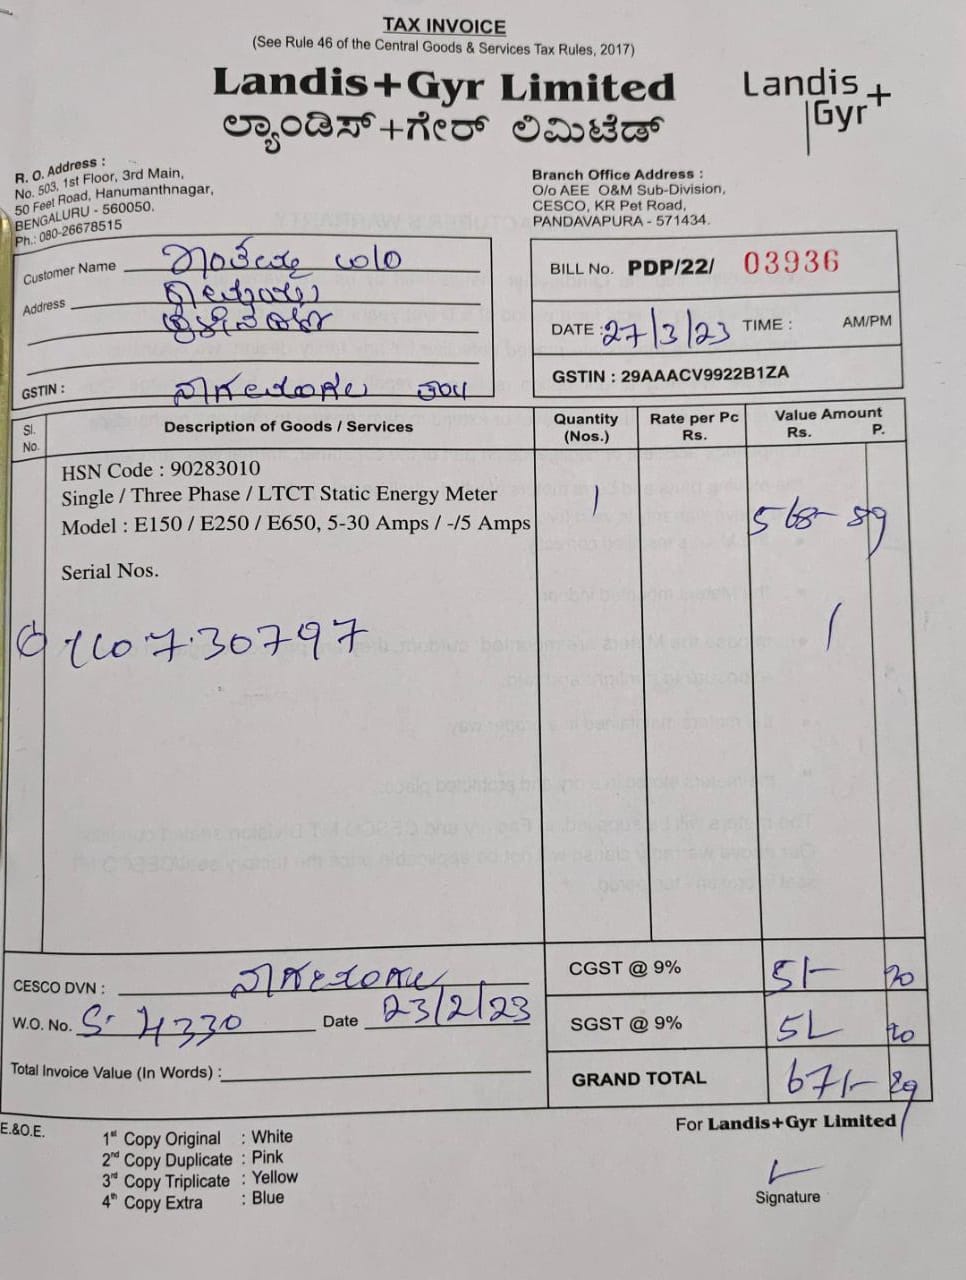 TAX INVOICE
(See Rule 46 of the Central Goods & Services Tax Rules, 2017)
Landis+Gyr Limited
ಲ್ಯಾಂಡಿಸ್+ಗೇರ್ ಲಿಮಿಟೆಡ್
Landis
Gyr+
R. O. Address :
No. 503, 1st Floor, 3rd Main,
50 Feet Road, Hanumanthnagar,
BENGALURU - 560050.
Ph.: 080-26678515
Branch Office Address :
O/o AEE O&M Sub-Division,
CESCO, KR Pet Road,
PANDAVAPURA - 571434.
Customer Name
Address
GSTIN :
BILL No. PDP/22/ 03936
DATE : 27/3/23 TIME : AM/PM
GSTIN : 29AAACV9922B1ZA
Sl. No. Description of Goods / Services Quantity (Nos.) Rate per Pc Rs. Value Amount Rs. P.
HSN Code : 90283010
Single / Three Phase / LTCT Static Energy Meter 1
Model : E150 / E250 / E650, 5-30 Amps / -/5 Amps 568- 89
Serial Nos.
30797
CESCO DVN :
CGST @ 9% 51- 20
W.O. No. 4330 Date 23/2/23
SGST @ 9% 51 20
Total Invoice Value (In Words) :
GRAND TOTAL 671- 29
E.&O.E.
1st Copy Original : White
2nd Copy Duplicate : Pink
3rd Copy Triplicate : Yellow
4th Copy Extra : Blue
For Landis+Gyr Limited
Signature